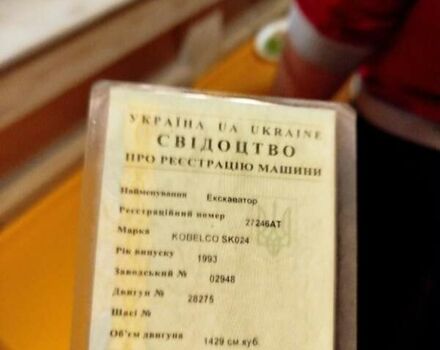 УКРАЇНА UA UKRAINE
СВІДОЦТВО
ПРО РЕЄСТРАЦІЮ МАШИНИ
Найменування Екскаватор
Реєстраційний номер 27246АТ
Марка KOBELCO SK024
Рік випуску 1993
Заводський № 02948
Двигун № 28275
Шасі №
Об'єм двигуна 1429 см куб.